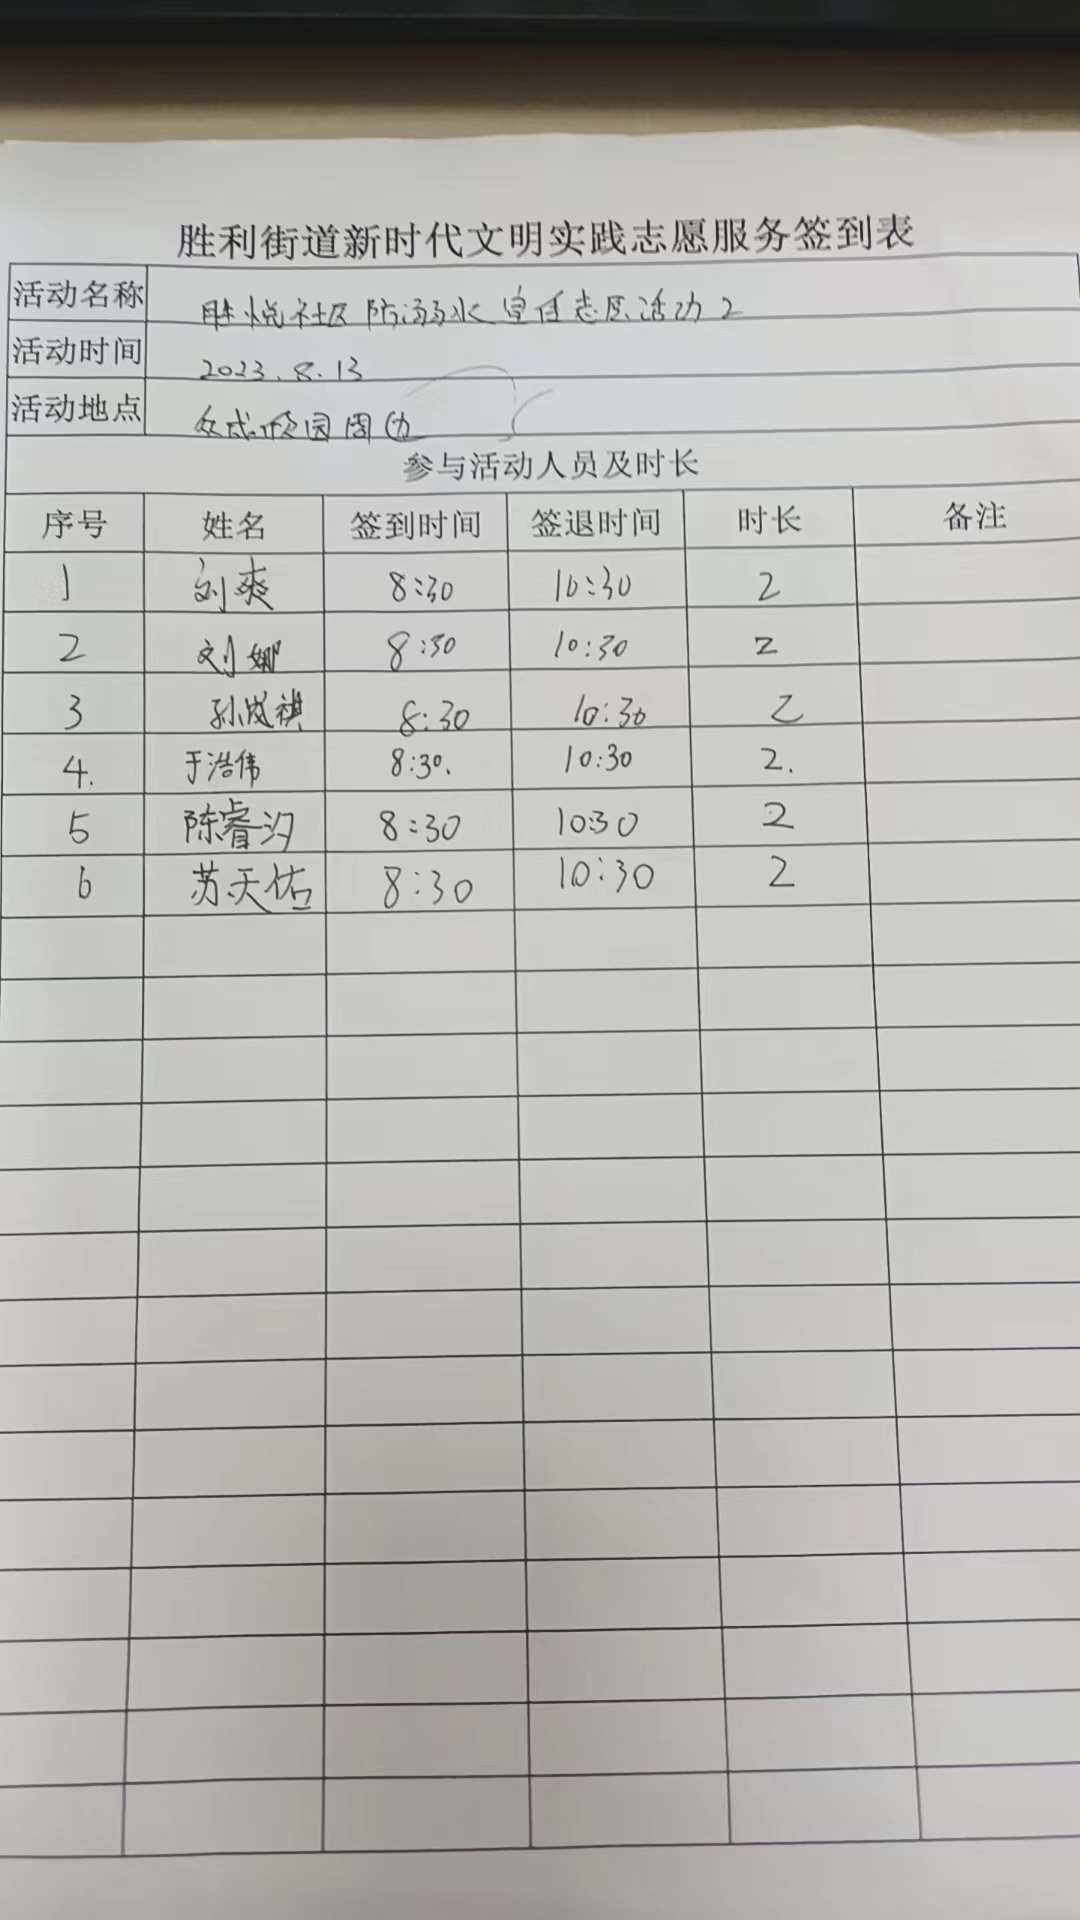 胜利街道新时代文明实践志愿服务签到表
活动名称 胜悦社区防溺水宣传志愿活动2
活动时间 2023.8.13
活动地点 园周边
参与活动人员及时长
序号 姓名 签到时间 签退时间 时长 备注
1 刘爽 8:30 10:30 2
2 刘娜 8:30 10:30 2
3 孙晟祺 8:30 10:30 2
4. 于浩伟 8:30. 10:30 2.
5 陈睿汐 8:30 10:30 2
6 苏天佑 8:30 10:30 2